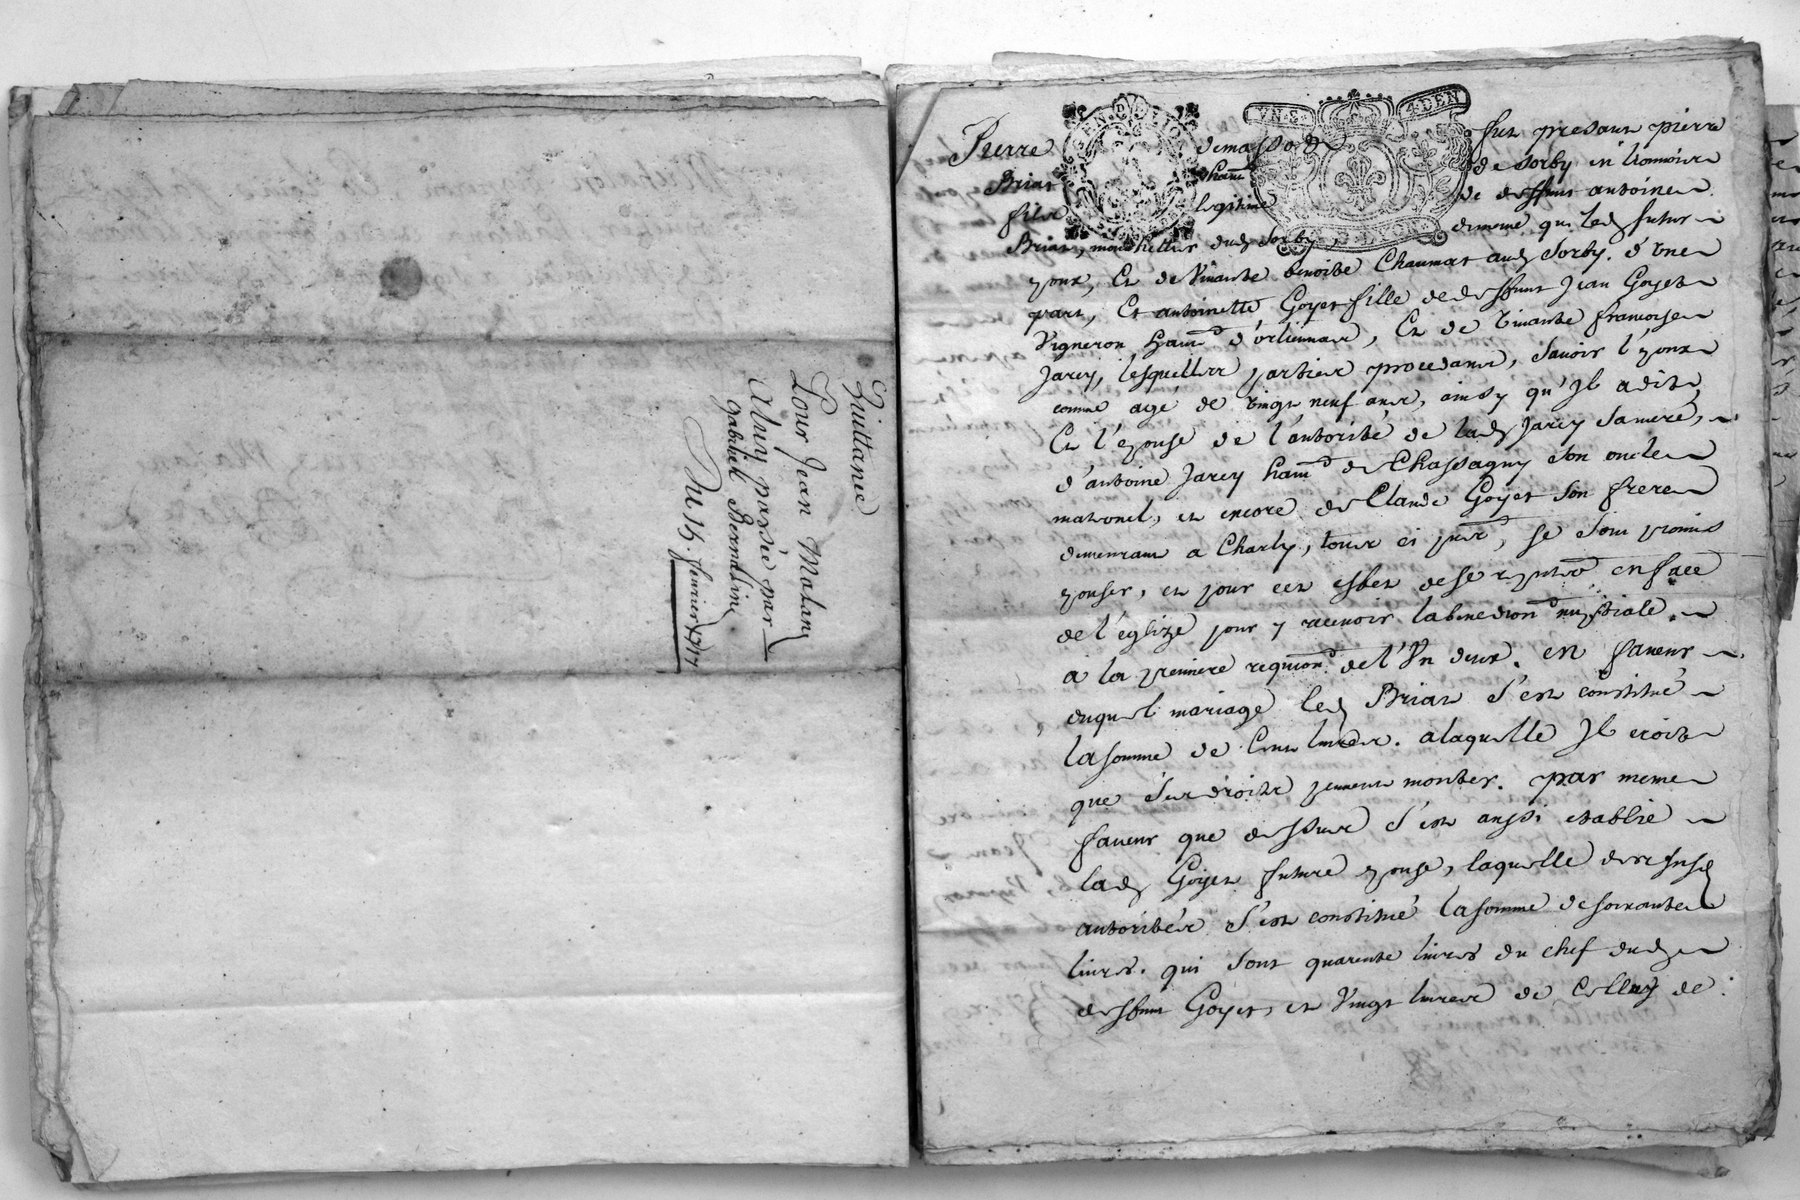 Quittance
Pour Jean Malan
Aluy passée par
gabriel Bernollin
Du 15. feurier 1717
GEN. DE LION
VN. S. 4 DEN
LYON
Pierre fut presant pierre
Briat habnt de sorby en lionnois
fils legitime de deffunt antoine
Briat, dudt Sorby demeure que ledt futur
poux, Et de Viuante benoiste Chaumat audt Sorby. d'Vne
part, Et antoinette Goyet fille de deffunt Jean Goyet
Vigneron habnt d'orliennas, Et de Viuante francoise
Jarcy, lesquelles parties procedans, sauoir l'epoux
comme agé de vingt neuf ans, ainsy qu'Jl a dit,
Et l'epouse de l'authorité de ladt Jarcy sa mere,
d'antoine Jarcy habnt de Chassagny son oncle
maternel, et encore de Claude Goyet son frere
demeurant a Charly, tous ci pnts, se sont promis
epouser, et pour cet effet de se en face
de l'eglize pour y receuoir la benedion nuptiale.
a la premiere requion de l'Vn deux. en faueur
duquel mariage ledt Briat s'est constitué
la somme de Cent liures. a laquelle Jl croit
que ses droits peuuent monter. par meme
faueur que dessus s'est aussi establie
ladt Goyet future epouse, laquelle
authorités s'est constitué la somme de soixante
liures. qui sont quarente liures du chef dudt
deffunt Goyet, et Vingt liures de Celluy de